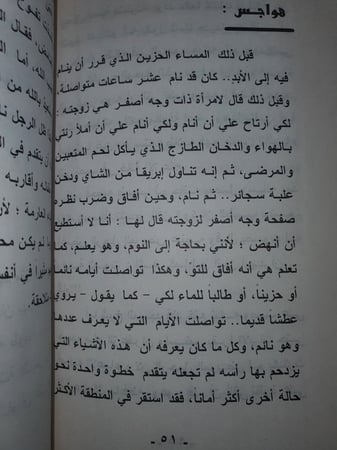 هواجس :
قبل ذلك المساء الحزين الذي قرر أن ينام
فيه إلى الأبد.. كان قد نام عشر ساعات متواصلة،
وقبل ذلك قال لامرأة ذات وجه أصفر هي زوجته :
لكي أرتاح علي أن أنام ولكي أنام علي أن أملأ رئتي
بالهواء والدخان الطازج الذي يأكل لحم المتعبين
والمرضى، ثم إنه تناول إبريقاً من الشاي ودخن
علبة سجائر.. ثم نام، وحين أفاق وضرب نظره
صفحة وجه أصفر لزوجته قال لها : أنا لا أستطيع
أن أنهض ؛ لأنني بحاجة إلى النوم، وهو يعلم، كما
تعلم هي أنه أفاق للتو، وهكذا تواصلت أيامه نائما
أو حزيناً، أو طالباً للماء لكي - كما يقول - يروي
عطشا قديما.. تواصلت الأيام التي لا يعرف عددها
وهو نائم، وكل ما كان يعرفه أن هذه الأشياء التي
يزدحم بها رأسه لم تجعله يتقدم خطوة واحدة نحو
حالة أخرى أكثر أماناً، فقد استقر في المنطقة الأكثر
- ٥١ -